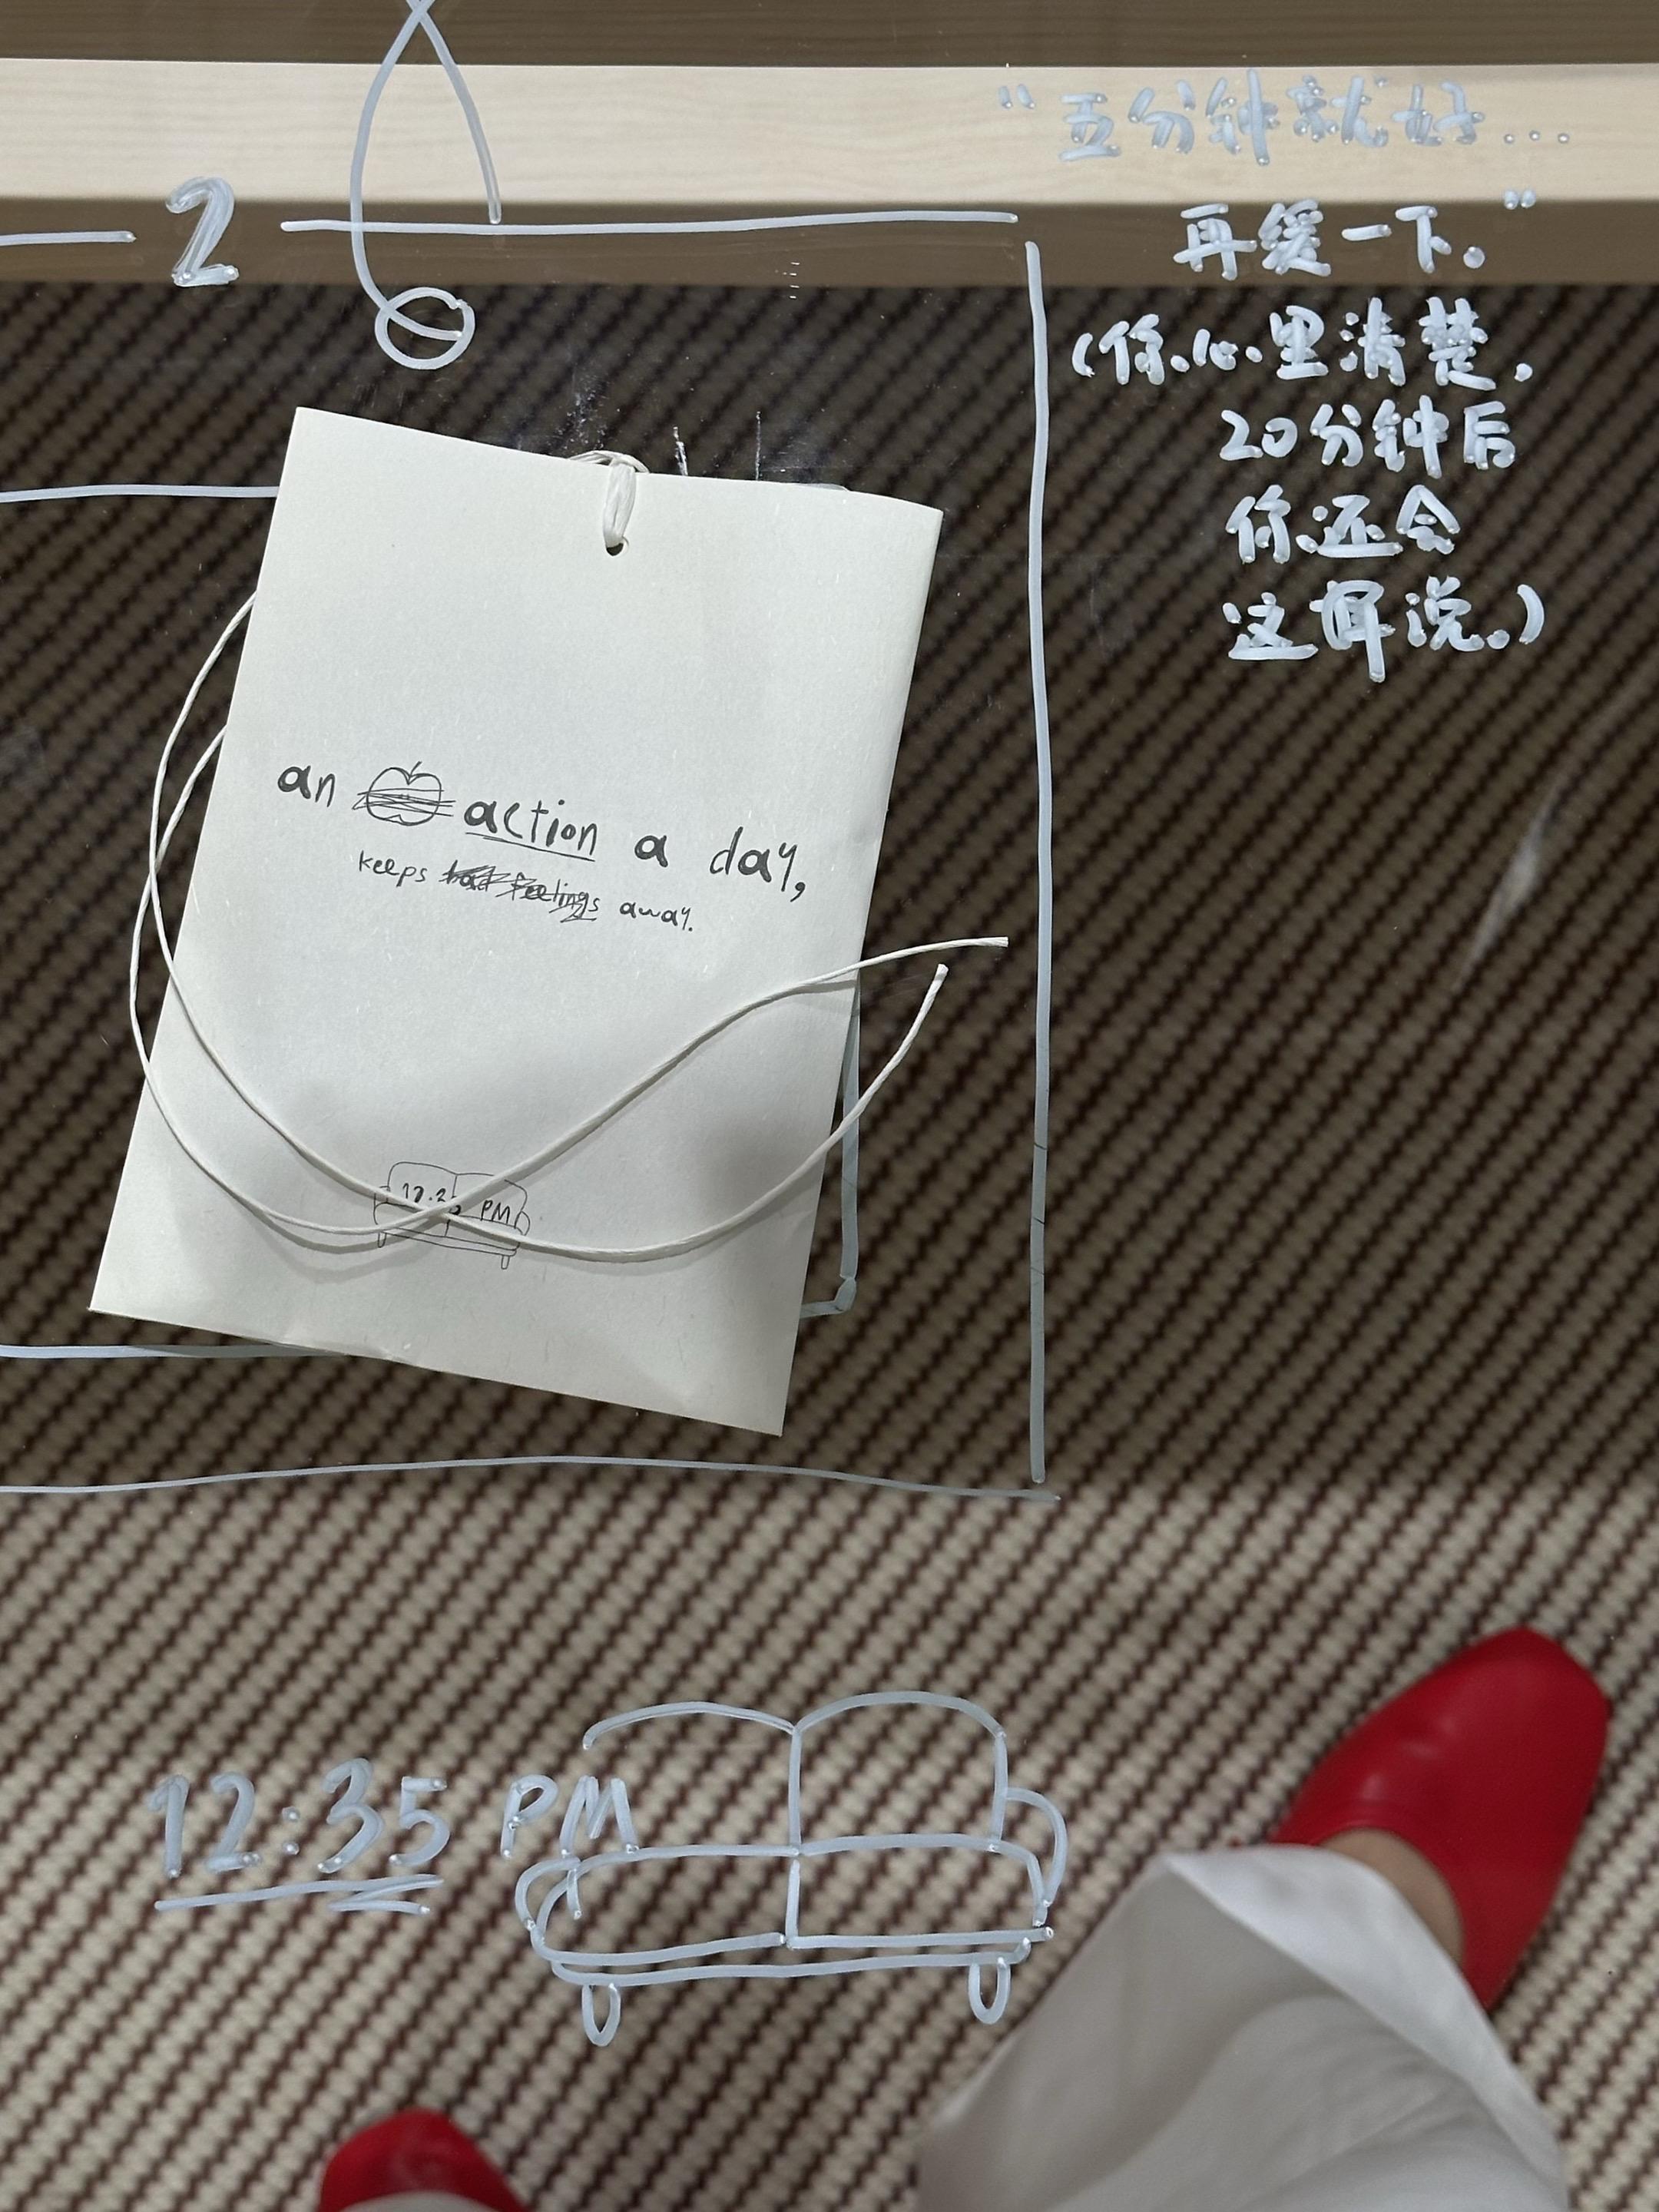 2
"五分钟就好...
再缓一下。"
(你心里清楚.
20分钟后
你还会
这样说.)
an action a day,
keeps bad feelings away.
PM
12:35 PM